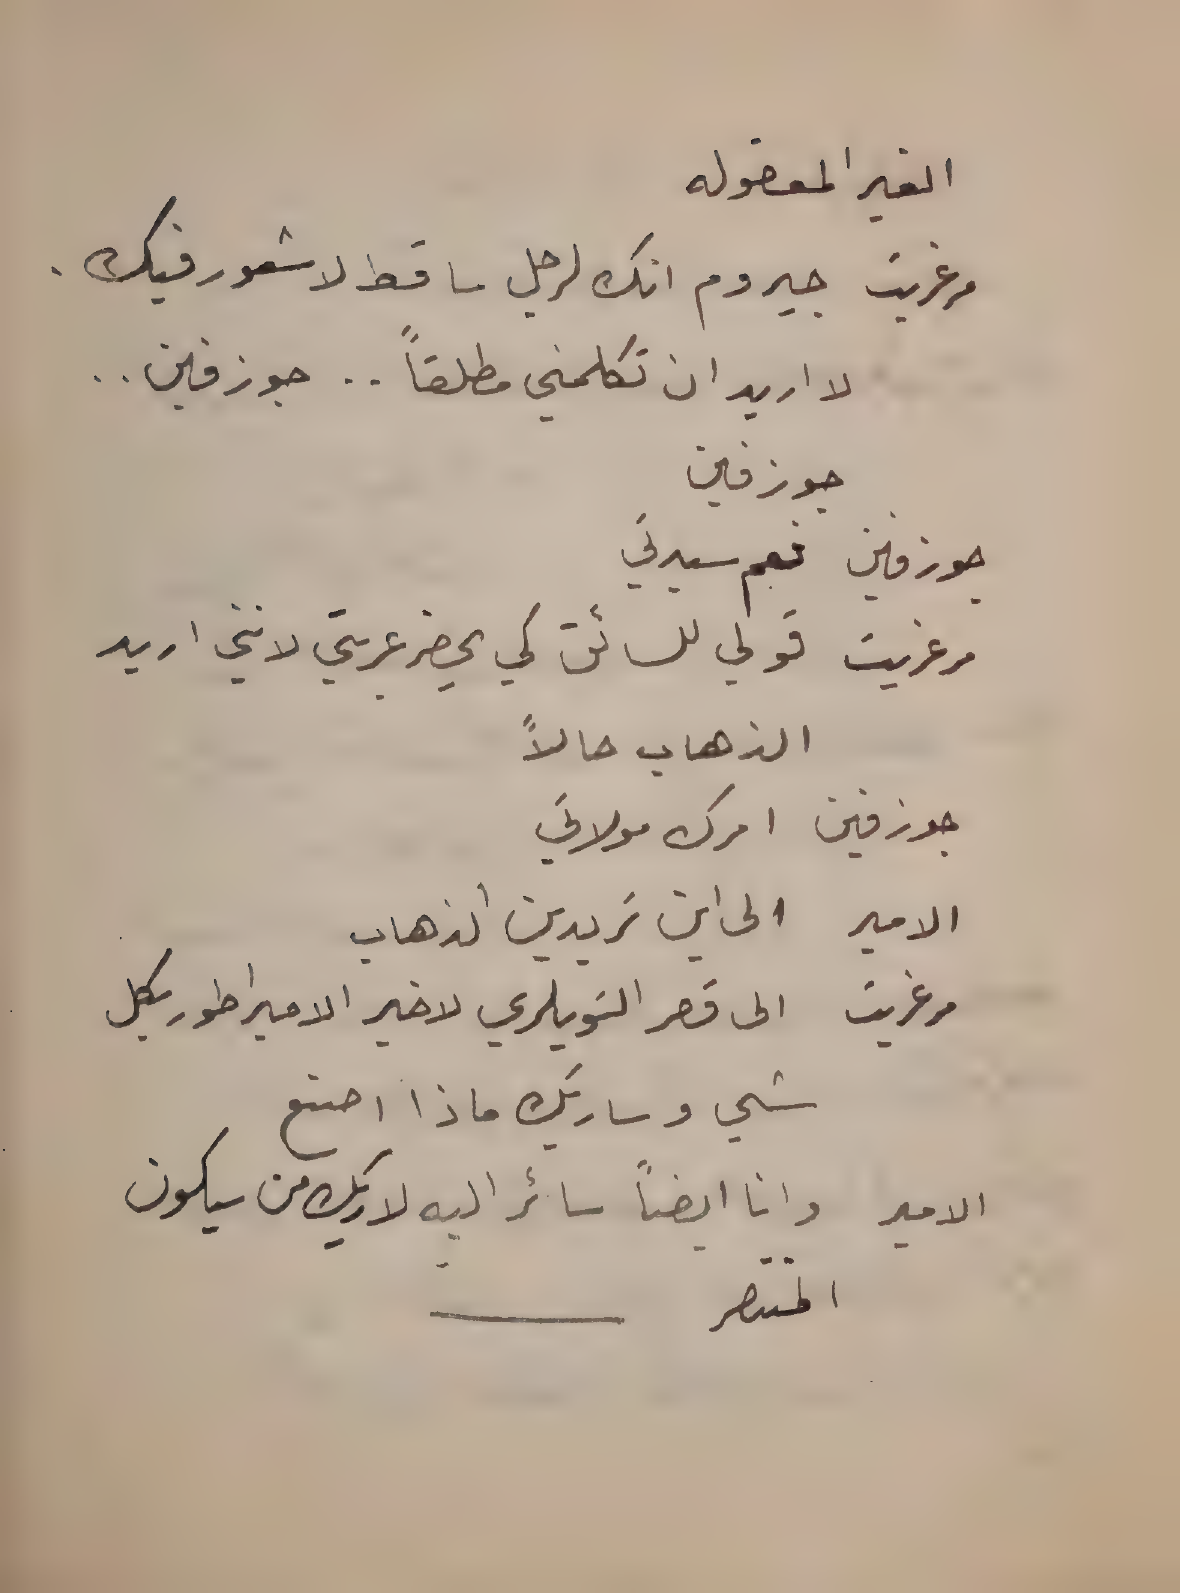 الغير المعقوله
مرغريت جيروم انك لرجل ساقط لا شعور فيك .
لا اريد ان تكلمني مطلقاً .. جوزفين ..
جوزفين
جوزفين نعم سيدتي
مرغريت قولي للسائق كي يحضر عربتي لانني اريد
الذهاب حالاً
جوزفين امرك مولاتي
الامير الى اين تريدين الذهاب
مرغريت الى قصر التويلري لاخبر الامبراطور بكل
شي وساريك ماذا اصنع
الامير وانا ايضاً سائر اليه لاريك من سيكون
المنتصر